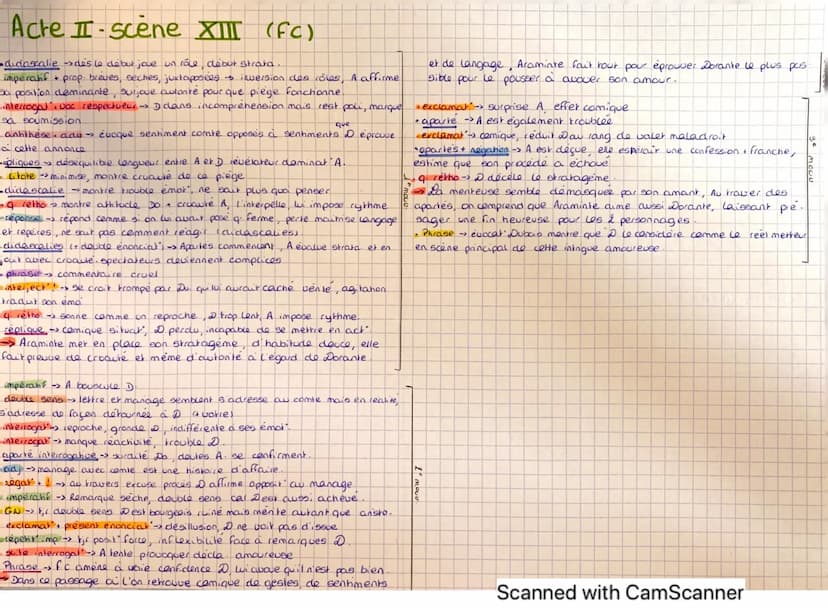 Acte II - scène XIII (FC)
• didascalie → dès le début joue un rôle, début strata.
impératif + prop. brèves, sèches, juxtaposées → inversion des rôles, A affirme
sa position dominante, surjoue autorité pour que piège fonctionne.
interrogat° + voc respectueux → D dans incompréhension mais reste poli, marque
sa soumission
antithèse + adv → évoque sentiment comte opposés à sentiments que D éprouve
à cette annonce
répliques → déséquilibre longueur entre A et D révélateur dominat° A.
litote → minimise, montre cruauté de ce piège
• didascalie → montre trouble émot°, ne sait plus quoi penser
• q rétho → montre attitude Do + cruauté A, l'interpelle, lui impose rythme
réponse → répond comme si on lui avait posé q ferme, perte maîtrise langage
et repères, ne sait pas comment réagir (didascalies)
didascalies (+ double énonciat°) → Apartés commencent, A évalue strata et en
jouit avec cruauté. spectateurs deviennent complices
• phrase → commentaire cruel
• interject° ! → se croit trompé par Du qui lui aurait caché vérité, agitation
traduit son émo
q rétho → sonne comme un reproche, D trop lent, A impose rythme.
réplique → comique situat°, D perdu, incapable de se mettre en act°
→ Araminte met en place son stratagème, d'habitude douce, elle
fait preuve de cruauté et même d'autorité à l'égard de Dorante.
1er mouv
impératif → A bouscule D.
double sens → lettre et mariage semblent s'adresse au comte mais en réalité,
s'adresse de façon détournée à D (+ votre)
interrogat° → reproche, gronde D, indifférente à ses émot°.
interrogat° → manque réactivité, trouble D.
aparté interrogative → sur aide Du, doutes A se confirment.
adj → mariage avec comte est une histoire d'affaire.
négat° + ! → au travers excuse procès D affirme opposit° au mariage
impératif → Remarque sèche, double sens cal D est aussi achevé.
GN → tjr double sens D est bourgeois ruiné mais mérite autant que aristo.
exclamat° + présent énonciat° → désillusion, D ne voit pas d'issue
répétit° imp → tjr posit° force, inflexibilité face à remarques D.
suite interrogat° → A tente provoquer décla amoureuse
Phrase → fc amène à voie confidence D, lui avoue qu'il n'est pas bien.
→ Dans ce passage où l'on retrouve comique de gestes, de sentiments
2e mouv
et de langage, Araminte fait tout pour éprouver Dorante le plus pos
sible pour le pousser à avouer son amour.
• exclamat° → surprise A, effet comique
• aparté → A est également troublée
• exclamat° → comique, réduit D au rang de valet maladroit
• apartés + négation → A est déçue, elle espérait une confession + franche,
estime que son procédé a échoué
q rétho → D décèle le stratagème.
→ La menteuse semble démasquée par son amant, Au travers des
apartés, on comprend que Araminte aime aussi Dorante, laissant pré
sager une fin heureuse pour les 2 personnages.
• Phrase → évocat° Dubois montre que D le considère comme le réel metteur
en scène principal de cette intrigue amoureuse.
3e mouv
Scanned with CamScanner